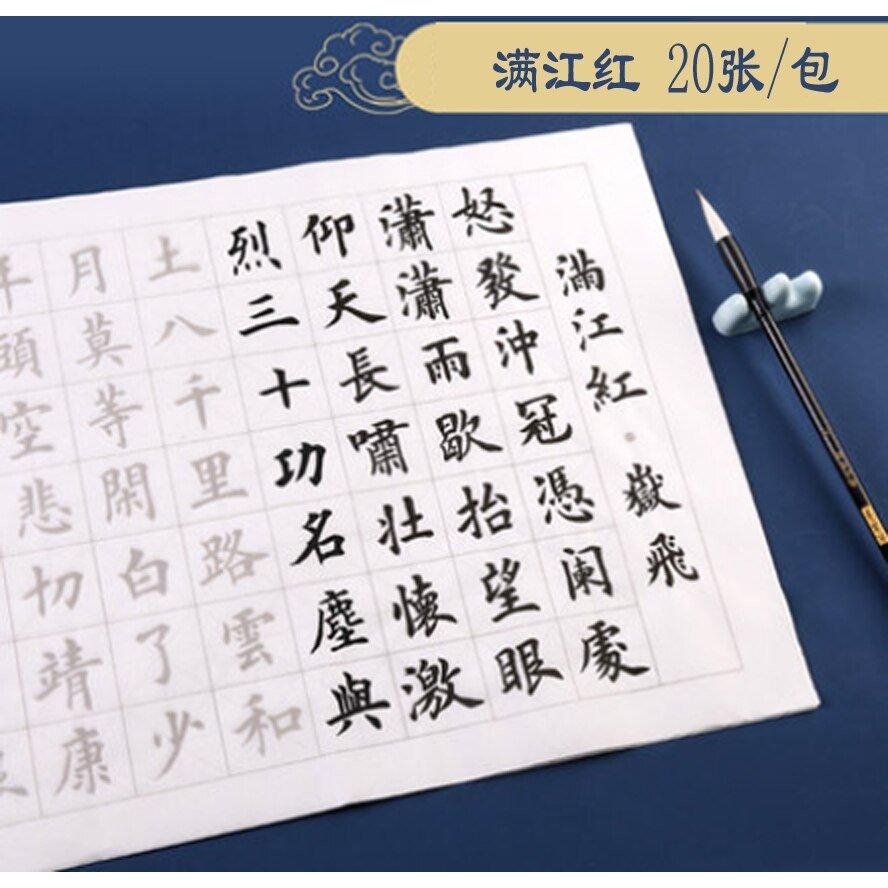 满江红 20张/包
滿江紅·嶽飛
怒發沖冠憑阑處
瀟瀟雨歇抬望眼
仰天長嘯壯懷激
烈三十功名塵與
土八千里路雲和
月莫等閑白了少
年頭空悲切靖康